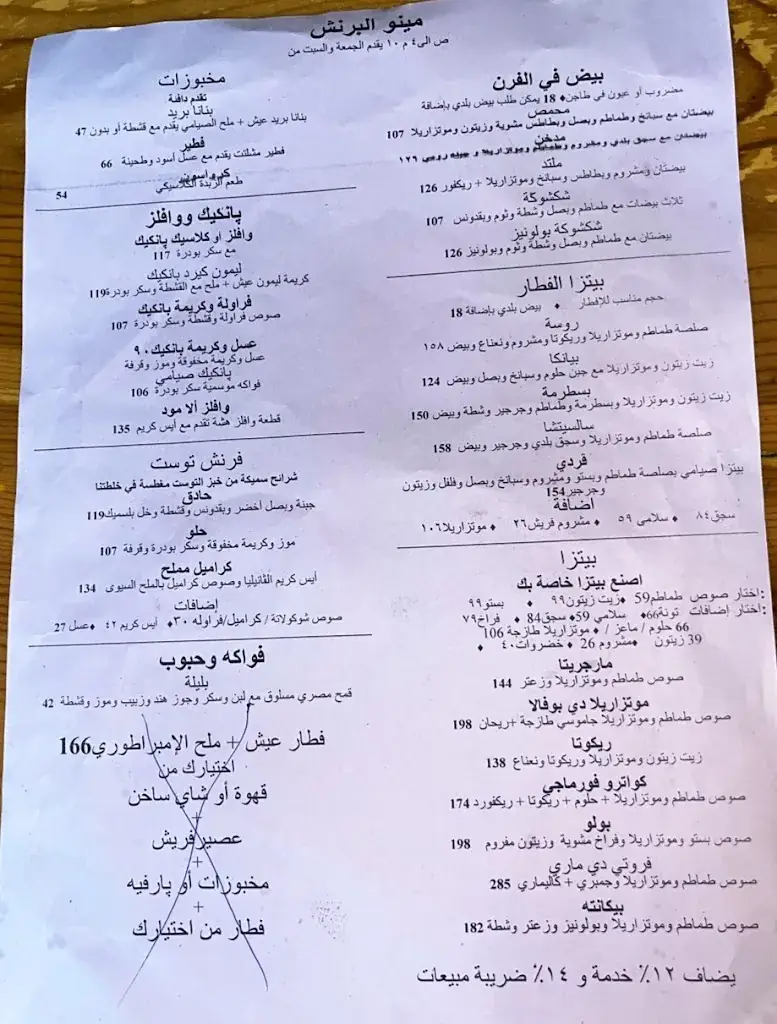 مينو البرنش
ص الى٤ م ١٠ يقدم الجمعة والسبت من
بيض في الفرن
مضروب أو عيون في طاجن♦ 18 يمكن طلب بيض بلدي بإضافة
محمص
بيضتان مع سبانخ وطماطم وبصل وبطاطس مشوية وزيتون وموتزاريلا 107
مدخن
بيضتان مع سجق بلدي ومشروم وطماطم وموتزاريلا و جبنه رومي ١٢٦
ملتد
بيضتان ومشروم وبطاطس وسبانخ وموتزاريلا + ريكفور 126
شكشوكة
ثلاث بيضات مع طماطم وبصل وشطة وثوم وبقدونس 107
شكشوكة بولونيز
بيضتان مع طماطم وبصل وشطة وثوم وبولونيز 126
بيتزا الفطار
حجم مناسب للإفطار ♦ بيض بلدي بإضافة 18
روسة
صلصة طماطم وموتزاريلا وريكوتا ومشروم ونعناع وبيض ١٥٨
بيانكا
زيت زيتون وموتزاريلا مع جبن حلوم وسبانخ وبصل وبيض 124
بسطرمة
زيت زيتون وموتزاريلا وبسطرمة وطماطم وجرجير وشطة وبيض 150
سالسيتشا
صلصة طماطم وموتزاريلا وسجق بلدي وجرجير وبيض 158
فردي
بيتزا صيامي بصلصة طماطم وبستو ومشروم وسبانخ وبصل وفلفل وزيتون
وجرجير154
اضافة
سجق٨٤ ♦ سلامى ٥٩ ♦ مشروم فريش٢٦ ♦ موتزاريلا١٠٦
بيتزا
اصنع بيتزا خاصة بك
:اختار صوص طماطم59 ♦زيت زيتون٩٩ ♦ بستو٩٩
:اختار إضافات تونة66♦ سلامي 59♦ سجق84 ♦ فراخ٧٩
66 حلوم / ماعز / ♦ موتزاريلا طازجة 106
39 زيتون ♦مشروم 26 ♦ خضروات٤٠ ♦
مارجريتا
صوص طماطم وموتزاريلا وزعتر 144
موتزاريلا دي بوفالا
صوص طماطم وموتزاريلا جاموسي طازجة +ريحان 198
ريكوتا
زيت زيتون وموتزاريلا وريكوتا ونعناع 138
كواترو فورماجي
صوص طماطم وموتزاريلا + حلوم + ريكوتا + ريكفورد 174
بولو
صوص بستو وموتزاريلا وفراخ مشوية وزيتون مفروم 198
فروتي دي ماري
صوص طماطم وموتزاريلا وجمبري + كاليماري 285
بيكانته
صوص طماطم وموتزاريلا وبولونيز وزعتر وشطة 182
يضاف ١٢٪ خدمة و ١٤٪ ضريبة مبيعات
مخبوزات
تقدم دافئة
بنانا بريد
بنانا بريد عيش + ملح الصيامي يقدم مع قشطة أو بدون 47
فطير
فطير مشلتت يقدم مع عسل أسود وطحينة 66
كرواسون
طعم الزبدة الكلاسيكي 54
پانكيك ووافلز
وافلز او كلاسيك پانكيك
مع سكر بودرة 117
ليمون كيرد بانكيك
كريمة ليمون عيش + ملح مع القشطة وسكر بودرة119
فراولة وكريمة بانكيك
صوص فراولة وقشطة وسكر بودرة 107
عسل وكريمة بانكيك٩٠
عسل وكريمة مخفوقة وموز وقرفة
پانكيك صيامي
فواكه موسمية سكر بودرة 106
وافلز ألا مود
قطعة وافلز هشة تقدم مع آيس كريم 135
فرنش توست
شرائح سميكة من خبز التوست مغطسة في خلطتنا
حادق
جبنة وبصل أخضر وبقدونس وقشطة وخل بلسميك119
حلو
موز وكريمة مخفوقة وسكر بودرة وقرفة 107
كراميل مملح
آيس كريم الڤانيليا وصوص كراميل بالملح السيوى 134
إضافات
صوص شوكولاتة / كراميل/فراوله ٣٠♦ أيس كريم ٤٢ ♦عسل 27
فواكه وحبوب
بليلة
قمح مصري مسلوق مع لبن وسكر وجوز هند وزبيب وموز وقشطة 42
فطار عيش + ملح الإمبراطوري166
اختيارك من
قهوة أو شاي ساخن
+
عصير فريش
+
مخبوزات أو پارفيه
+
فطار من اختيارك